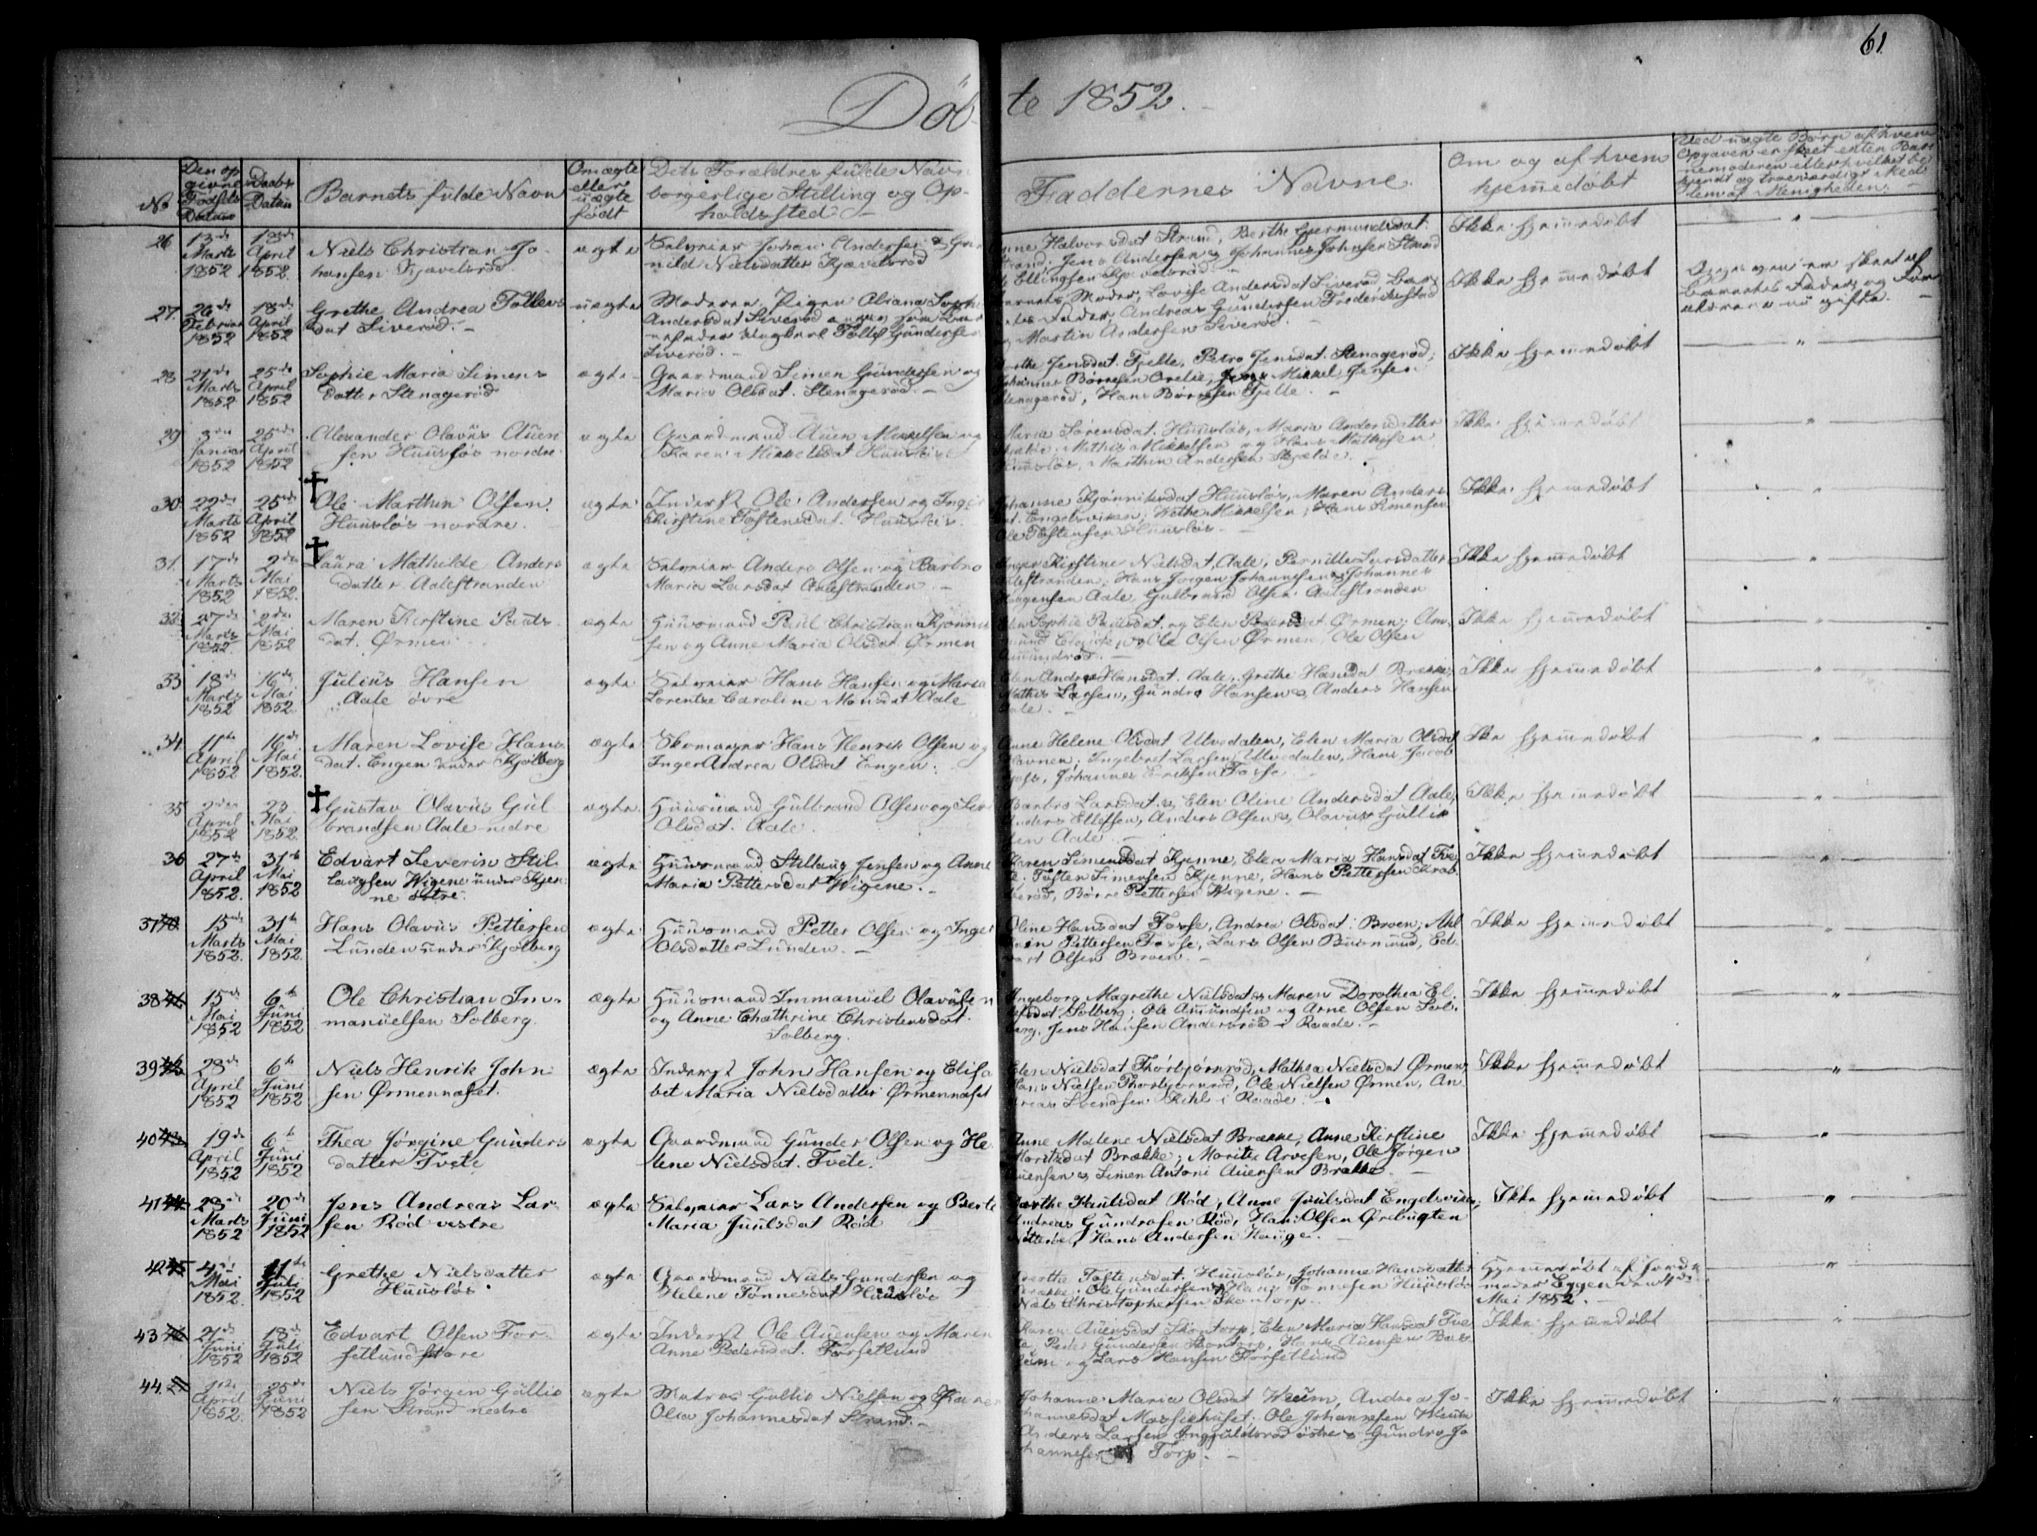 61.
Döbte 1852.
No
Den opgivne Fødsels Datum
Daabs Datum
Barnets fulde Navn
Om ægte eller uægte født
Dets Forældres fulde Navn borgerlige Stilling og Opholdssted
Faddernes Navne
Om og af hvem hjemmedøbt
Ved uægte Børn af hvem Opgaven er skeet enten Barnemoderen eller hvilket bekjendt og troværdigt Medlem af Menigheden
26 13de Marts 1852 18de April 1852 Niels Christian Johansen Kjævelsrød ægte Selveier Johan Andersen & Gunild Nielsdatter Kjævelsrød
Anne Halvorsdat Strand, Berthe Germundsdat
Strand, Jens Andersen & Johannes Johnsen Strand
Ellingsen Kjævelsrød Ikke hjemmedøbt "
27 26de Februar 1852 18de April 1852 Grethe Andrea Tollevsdat Liverød uægte Moderen, Pigen Oliana Sophi Andersdat Liverød Tollef Gundersen Liverød.
Barnets Moder, Lovise Andersdat Liverød, Barnets Fader, Andreas Gundersen Frederikstad
og Martin Andersen Liverød. Ikke hjemmedøbt Opgaven er skeet af barnets Fader og gifte.
28 21de Marts 1852 25de April 1852 Sophie Maria Simensdatter Stenagerød ægte Gaardmand Simen Gundersen og Maria Olsdat. Stenagerød.
Jensdat. Fjelle, Petro Jensdat. Stenagerød,
Johannes Børresen Orelie, Mikkel Jensen
Stenagerød, Hans Børresen Fjelle. Ikke hjemmedøbt "
29 3die Januar 1852 25de April 1852 Alexander Olavus Auensen Huusløs nordre ægte Gaardmand Auen Mikkelsen og Karen Mikkelsdat Huusløs
Maria Sørensdat. Huusløs, Maria Andersdatter
Mathis Mikkelsen og Hans Mathisen
Huusløs, Marthin Andersen Skjeløe. Ikke hjemmedøbt "
30 22de Marts 1852 25de April 1852 † Ole Marthin Olsen. Huusløs nordre. ægte Inderst Ole Andersen og Inger Kirstine Tostensdat. Huusløs.
Johanne Kjønniksdat Huusløs, Maren Andersdat. Engelsviken, Mikkelsen, Hans Simensen
Ole Tostensen Huusløs Ikke hjemmedøbt "
31. 17de Marts 1852 2den Mai 1852. † Laura Mathilde Andersdatter Aalestranden ægte Selveier Anders Olsen og Barbro Maria Larsdat Aalestranden
Inger Kirstine Nielsdat, Aale, Pernille Larsdatter
Aalestranden, Hans Jørgen Johannesen & Johannes
Haagensen Aale, Gulbrand Olsen Aalestranden Ikke hjemmedøbt "
32 27de Marts 1852 2den Mai 1852. Maren Kirstine Paulsdat. Ørmen ægte Huusmand Paul Christian Kjønniksen og Anne Maria Olsdat Ørmen
Sophie Paulsdat. og Elen Pedersdat. Ørmen,
Ole Olsen Ørmen, Ole Olsen
Amundrød. Ikke hjemmedøbt "
33 18de Marts 1852 16de Mai 1852. Julius Hansen Aale øvre ægte Selveier Hans Hansen og Maria Lorentse Caroline Monsdat Aale
Elen Andrea Hansdat. Aale, Grethe Hansdat Brække,
Mathis Larsen, Gundro Hansen & Anders Hansen
Aale. Ikke hjemmedøbt "
34 11te April 1852 16de Mai 1852. Maren Lovise Hansdat. Engen under Kjølberg ægte Skomager Hans Henrik Olsen og Inger Andrea Olsdat Engen.
Anne Helene Olsdat Ulvedalen, Elen Maria Olsdat
Havnen, Ingebret Larsen Ulvedalen, Hans Jacob
Johannes Eriksen Fosse Ikke hjemmedøbt "
35 2den April 1852 23 Mai 1852. † Gustav Olavus Gulbrandsen Aale nedre ægte Huusmand Gulbrand Olsen og Olsdat. Aale.
Barbro Larsdat. & Elen Oline Andersdat Aale,
Anders Ellefsen, Anders Olsen & Olavus Gulliksen Aale Ikke hjemmedøbt "
36 27de April 1852. 31te Mai 1852 Edvart Severin Stillaugsen Wigene under Kjenne østre. ægte Huusmand Stillaug Jensen og Anne Maria Pettersdat Wigene.
Karen Simensdat Kjenne, Elen Maria Hansdat Tvete, Tosten Simensen Kjenne, Hans Pettersen
Børre Pettersen Wigene. Ikke hjemmedøbt "
37 15de Marts 1852. 31te Mai 1852. Hans Olavus Pettersen Lunden under Kjølberg ægte Huusmand Petter Olsen og Inger Olsdatter Lunden.
Oline Hansdat Fosse, Andrea Olsdat. Broen,
Pettersen Fosse, Lars Olsen Buumund, Edvart Olsen Broen. Ikke hjemmedøbt "
38 15de Mai 1852 6te Juni 1852 Ole Christian Immanuelsen Solberg. ægte Huusmand Immanuel Olavesen og Anne Chathrine Christensdat. Solberg.
Ingeborg Magrethe Nielsdat & Maren Dorothea
Solberg, Ole Amundsen og Arne Olsen Solberg, Jens Hansen Andersrød i Raade. Ikke hjemmedøbt "
39 28de April 1852 6te Juni 1852 Niels Henrik Johnsen Ørmennæset. ægte Inderst John Hansen og Elisabet Maria Nielsdatter Ørmennæset
Elen Nielsdat Thorbjørnrød, Mathea Nielsdat Ørmen,
Hans Nielsen Thorbjørnrød, Ole Nielsen Ørmen, Andreas Svendsen Kihl i Raade. Ikke hjemmedøbt "
40 19de April 1852 6te Juni 1852 Thea Jørgine Gundersdatter Tvete ægte Gaardmand Gunder Olsen og Helene Nielsdat. Tvete.
Anne Malene Nielsdat Brække, Anne Kirstine
Moritsdat Brække, Morits Arvesen, Ole Jørgen
Auensen & Simen Antoni Auensen Brække Ikke hjemmedøbt "
41 28de Marts 1852 20de Juni 1852 Jens Andreas Larsen Rød vestre ægte Selveier Lars Andersen og Berte Maria Juulsdat Rød
Berthe Juulsdat Rød, Anne Juulsdat Engelsviken,
Andreas Gundrosen Rød, Hans Olsen Ørebugten
Hans Andersen Hauge. Ikke hjemmedøbt "
42 4de Mai 1852. 11te Juli 1852 Grethe Nielsdatter Huusløs ægte Gaardmand Niels Gundersen og Helene Tønnesdat Huusløs
Berthe Tostensdat. Huusløs, Johanne Hansdatter
Brække, Ole Gundersen & Hans Tønnesen Huusløs
Niels Christophersen Skontorp. Hjemmedøbt af Jordemoder Eggen den Mai 1852. "
43 21de Juni 1852 18de Juli 1852 Edvart Olsen Forsetlund store ægte Inderst Ole Auensen og Maren Anne Pedersdat. Forsetlund
Karen Auensdat Skontorp, Elen Maria Hansdat Tvete, Peder Gundersen Skontorp, Hans Auensen
og Lars Hansen Forsetlund Ikke hjemmedøbt "
44. April 1852. 25de 1852 Niels Jørgen Gulliksen Strand nedre ægte Matros Gullik Nielsen og Olea Johannesdat Strand.
Johanne Maria Olsdat Weum, Andrea Johannesdat Mossiehuset, Ole Johannesen Weum
Anders Larsen Ingjuldsrød østre & Gundro Johannesen Torp. Ikke hjemmedøbt "